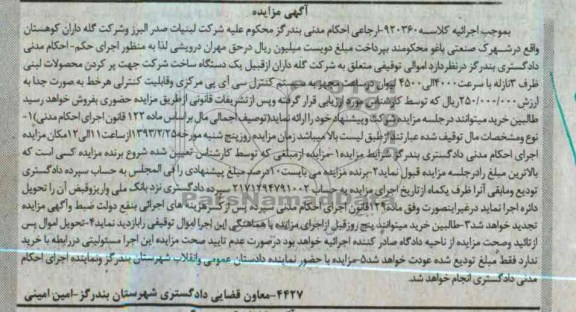 آگهی مزایده
بموجب اجرائیه کلاسه ۹۲۰۳۶۰-ارجاعی احکام مدنی بندرگز محکوم علیه شرکت لبنیات صدر البرز وشرکت گله داران کوهستان
واقع درشهرک صنعتی یاغو محکومند بپرداخت مبلغ دویست میلیون ریال درحق مهران درویشی لذا به منظور اجرای حکم-احکام مدنی
دادگستری بندرگز درنظردارد اموالی توقیفی متعلق به شرکت گله داران ازقبیل یک دستگاه ساخت شرکت جهت پر کردن محصولات لبنی
ظرف ۴نازله با سرعت ۴۰۰۰الی ۴۵۰۰ لیوان درساعت مجهز به سیستم کنترل سی آی پی مرکزی وقابلیت کنترلی هرخط به صورت جدا به
ارزش ۲۵۰/۰۰۰/۰۰۰ریال که توسط کارشناس مورد ارزیابی قرار گرفته وپس ازتشریفات قانونی ازطریق مزایده حضوری بفروش خواهد رسید
طالبین خرید میتوانند درجلسه مزایده شرکت وپیشنهاد خود را ارائه نمایند(توصیف اجمالی مال براساس ماده ۱۲۲ قانون اجرای احکام مدنی)۱-
نوع ومشخصات مال توقیف شده عبارتند ازطبق لیست بالا میباشد زمان مزایده روزپنج شنبه مورخه ۱۳۹۳/۲/۲۵ازساعت ۱۱الی۱۲مکان مزایده
اجرای احکام مدنی دادگستری بندرگز شرایط مزایده۱-مزایده ازمبلغی که توسط کارشناس تعیین شده شروع برنده مزایده کسی است که
بالاترین مبلغ رادرجلسه مزایده قبول نماید۲-برنده مزایده می بایست ۱۰درصد مبلغ پیشنهادی را فی المجلس به حساب سپرده دادگستری
تودیع ومابقی آنرا ظرف یکماه ازتاریخ اجرای مزایده به حساب ۲۱۷۱۲۹۴۷۹۱۰۰۲ سپرده دادگستری نزد بانک ملی واریزوفیش آن را تحویل
دائره اجرا نماید درغیراینصورت وفق ماده۱۲۹قانون اجرای احکام مدنی سپرده پس از کسرهزینه های اجرائی بنفع دولت ضبط وآگهی مزایده
تجدید خواهد شد۳-طالبین خرید میتوانند پنج روزقبل ازاجرای مزایده با هماهنگی این اجرا اموال توقیفی رابازدید نماید۴-تحویل اموال پس
از تائید وصحت مزایده از ناحیه دادگاه صادر کننده اجرائیه خواهد بود درصورت عدم تایید صحت مزایده این اجرا مسئولیتی دررابطه با خرید
ندارد فقط مبلغ تودیع شده عودت خواهد شد۵-مزایده با حضور نماینده دادستان عمومی وانقلاب شهرستان بندرگز ونماینده اجرای احکام
مدنی دادگستری انجام خواهد شد.
۴۴۲۷-معاون قضایی دادگستری شهرستان بندرگز-امین امینی